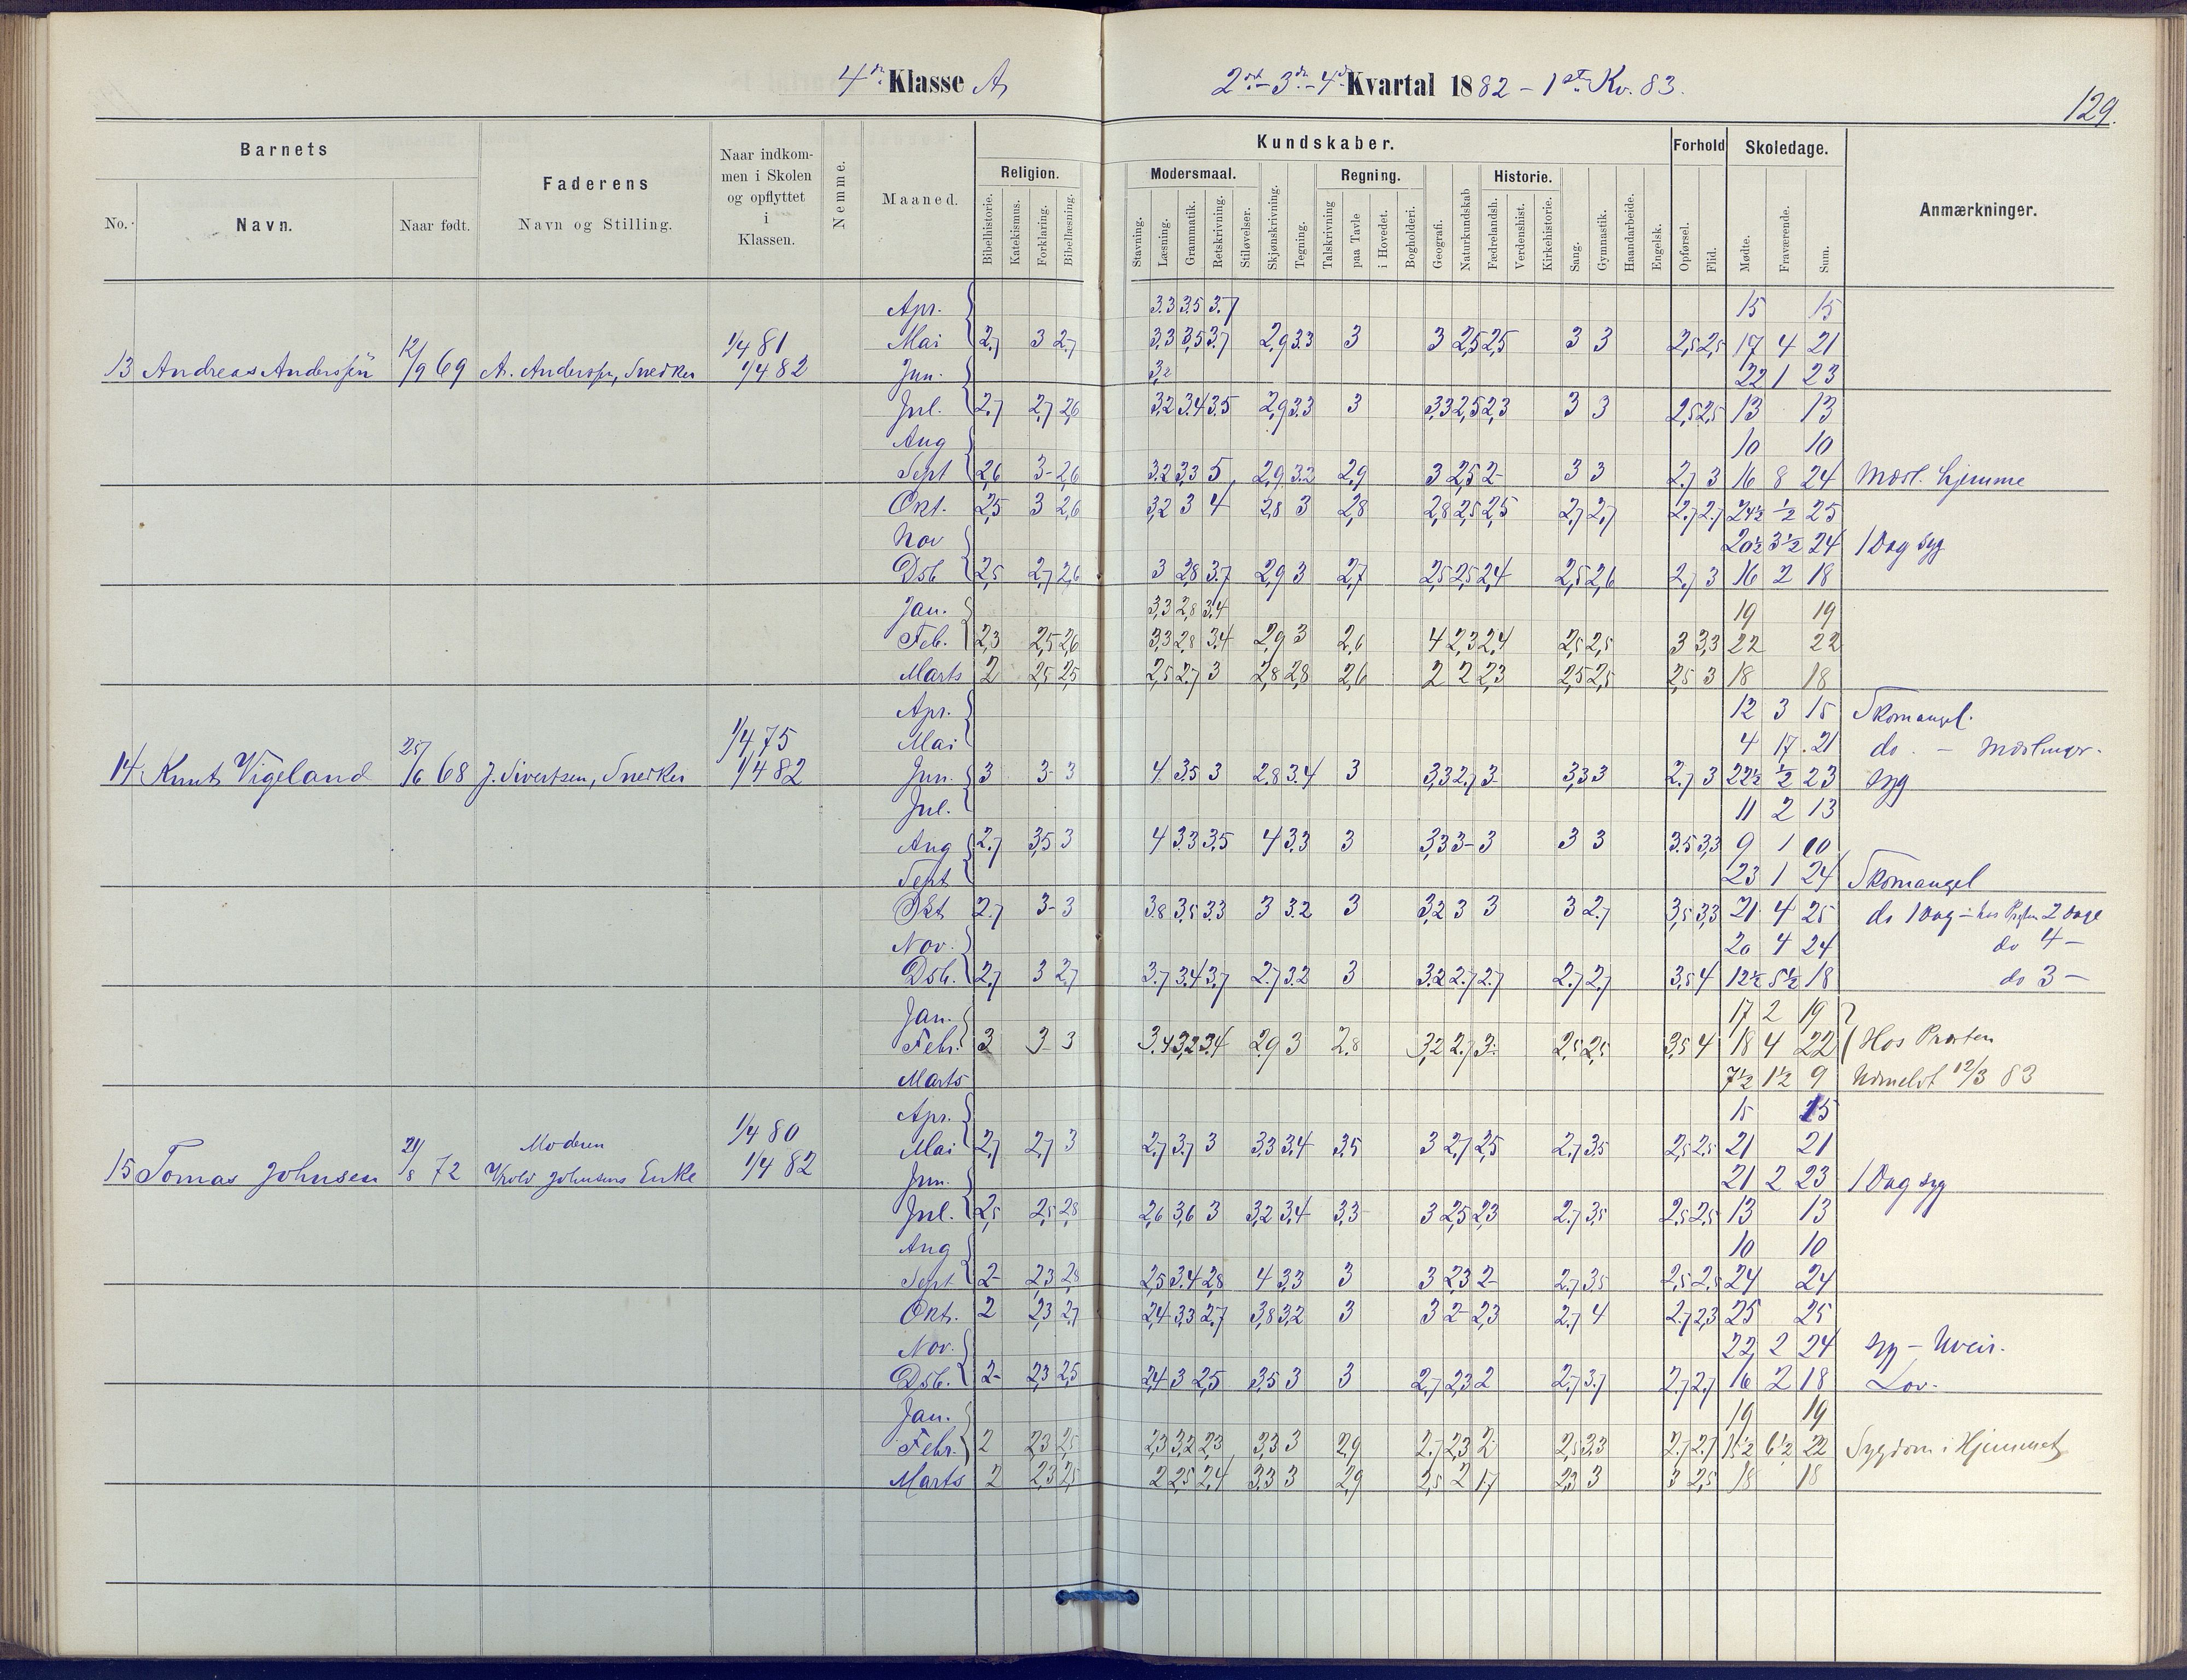 4de Klasse A,
2det - 3die - 4de Kvartal 1882 - 1ste Kv. 83.
129.
Barnets
No.
Navn.
Naar født.
Faderens
Navn og Stilling.
Naar indkom-
men i Skolen
og opflyttet
i
Klassen.
Nemme.
Maaned.
Kundskaber.
Religion.
Bibelhistorie. Katekismus. Forklaring. Bibellæsning.
Modersmaal.
Stavning. Læsning. Grammatik. Retskrivning. Stiløvelser. Skjønskrivning. Tegning.
Regning.
Talskrivning paa Tavle i Hovedet. Bogholderi. Geografi. Naturkundskab
Historie.
Fædrelandsh. Verdenshist. Kirkehistorie. Sang. Gymnastik. Haandarbeide. Engelsk.
Forhold
Opførsel. Flid.
Skoledage.
Mødte. Fraværende. Sum.
Anmærkninger.
13 Andreas Anderssen 12/9 69 A. Anderssen, Snedker 1/4 81 1/4 82
Apr. 3.3 3.5 3.7 15 15
Mai 2,7 3 2,7 3,3 3,5 3,7 2,9 3.3 3 3 2,5 2,5 3 3 2,5 2,5 17 4 21
Jun. 3,2 22 1 23
Jul. 2,7 2,7 2,6 3,2 3.4 3.5 2,9 3.3 3 3,3 2,5 2,3 3 3 2,5 2,5 13 13
Aug 10 10
Sept 2,6 3- 2,6 3.2 3,3 5 2,9 3.2 2,9 3 2,5 2- 3 3 2.7 3 16 8 24 Mæsl. hjemme
Okt. 2,5 3 2,6 3,2 3 4 2,8 3 2,8 2,8 2,5 2,5 2,7 2,7 2,7 2,7 24½ ½ 25
Nov 20½ 3½ 24 1 Dag syg
Dsb 2,5 2,7 2,6 3 2,8 3.7 2,9 3 2,7 2,5 2,5 2,4 2,5 2,6 2,7 3 16 2 18
Jan. 3,3 2,8 3,4 19 19
Feb. 2,3 2,5 2,6 3,3 2,8 3.4 2,9 3 2,6 4 2,3 2,4 2,5 2,5 3 3,3 22 22
Marts 2 2,5 2,5 2,5 2,7 3 2,8 2,8 2,6 2 2 2,3 2,5 2,5 2,5 3 18 18
14 Knut Vigeland 25/6 68 J. Sivertsen, Snedker 1/4 75 1/4 82
Apr. 12 3 15 Skomangel.
Mai 4 17 21 do. - Mæslinger.
Jun. 3 3- 3 4 3.5 3 2.8 3.4 3 3,3 2,7 3- 3,3 3 2.7 3 22½ ½ 23 syg
Jul. 11 2 13
Aug 2.7 3,5 3 4 3.3 3.5 4 3.3 3 3,3 3- 3 3 3 3.5 3,3 9 1 10
Sept 23 1 24 Skomangel
Okt 2.7 3- 3 3.8 3,5 3.3 3 3.2 3 3,2 3 3 3 2.7 3,5 3,3 21 4 25 do 1 Dag - hos Prsten 2 Dage
Nov. 20 4 24 do 4 -
Dsb. 2,7 3 2,7 3.7 3.4 3,7 2.7 3.2 3 3.2 2.7 2.7 2.7 2,7 3,5 4 12½ 5½ 18 do 3 -
Jan. 17 2 19
Febr. 3 3- 3 3.4 3,2 3.4 2,9 3 2.8 3,2 2.7 3- 2,5 2,5 3,5 4 18 4 22 Hos Præsten
Marts 7½ 1½ 9 Udmeldt 12/3 83
15 Tomas Johnsen 21/8 72 Moderen 1/4 80 1/4 82
Johnsens Enke
Apr. 15 15
Mai 2,7 2,7 3 2,7 3,7 3 3,3 3,4 3,5 3 2,7 2,5 2,7 3.5 2,5 2,5 21 21
Jun. 21 2 23 1 Dag syg
Jul. 2,5 2,5 2,8 2,6 3,6 3 3,2 3,4 3,3 3 2,5 2,3 2,7 3,5 2,5 2,5 13 13
Aug 10 10
Sept 2- 2,3 2,8 2,5 3.4 2,8 4 3,3 3 3 2,3 2- 2,7 3,5 2,5 2,5 24 24
Okt. 2 2,3 2,7 2,4 3,3 2,7 3,8 3,2 3 3 2- 2,3 2,7 4 2,7 2,3 25 25
Nov. 22 2 24 syg - Uveir.
Dsb. 2- 2,3 2,5 2,4 3 2,5 3,5 3 3 2,7 2,3 2 2,7 3.7 2,7 2,7 16 2 18 Lov.
Jan. 19 19
Febr. 2 2,3 2,5 2,3 3,2 2,3 3,3 3 2,9 2.7 2,3 2 2,5 3,3 2,7 2,7 15½ 6½ 22 Sygdom i Hjemmet
Marts 2 2,3 2,5 2 2,5 2,4 3,3 3 2,9 2,5 2 1,7 2,3 3 3 2,5 18 18